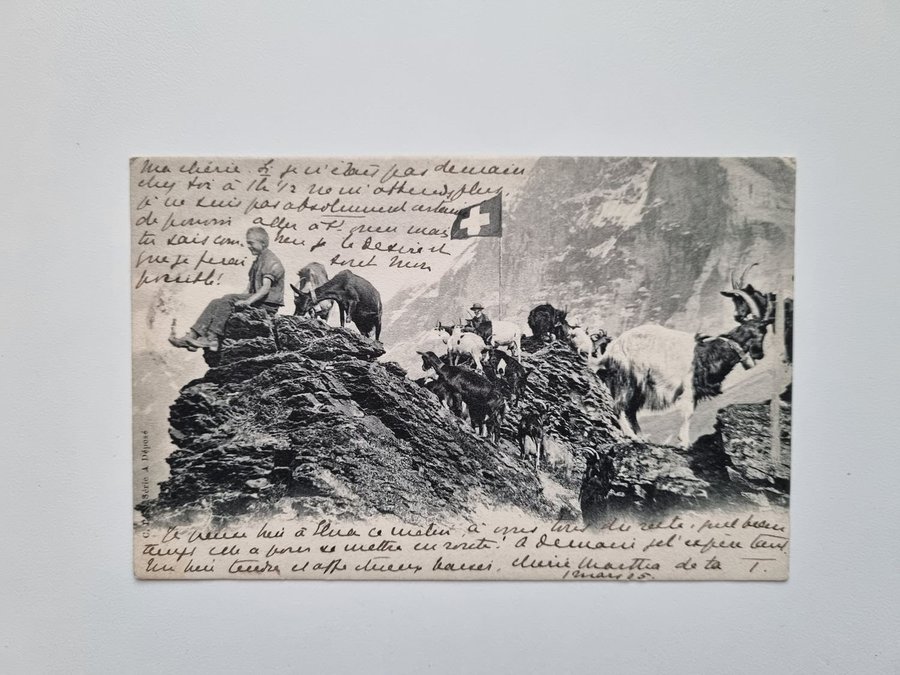 Ma chérie. Si je n'étais pas demain
chez toi à 1h 1/2 ne m'attendez plus
je ne suis pas absolument certaine
de pouvoir aller à St. mais
tu sais combien je le désire et
que je ferai tout mon
possible!
Série A Déposé
Je pense bien à Elna ce matin, à vous tous du reste, quel beau
temps elle a pour se mettre en route. A demain je l'espère tant.
Un bien tendre et affectueux baiser, chérie Martha de ta T.
1 mars 05.